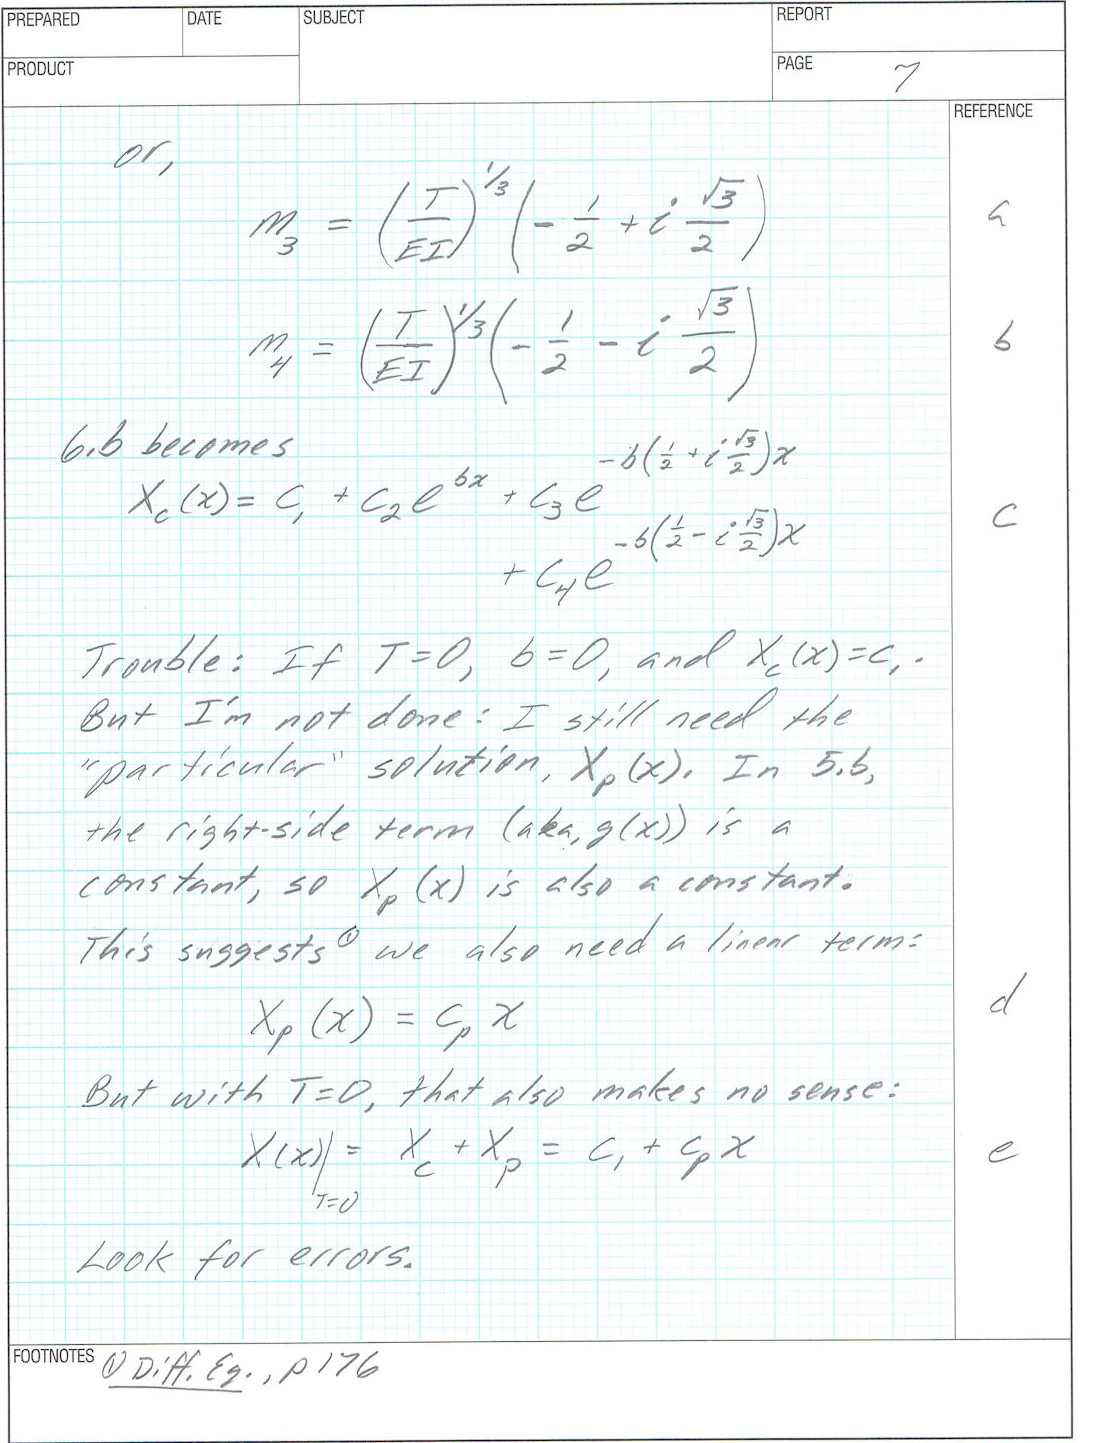 PREPARED DATE SUBJECT REPORT
PRODUCT PAGE 7
REFERENCE
or,
m₃ = (T/EI)^1/3 (-1/2 + i √3/2) a
m₄ = (T/EI)^1/3 (-1/2 - i √3/2) b
6.b becomes
X_c(x) = C₁ + C₂e^bx + C₃e^-b(1/2 + i √3/2)x c
+ C₄e^-b(1/2 - i √3/2)x
Trouble: If T=0, b=0, and X_c(x)=C₁.
But I'm not done: I still need the
"particular" solution, X_p(x). In 5.b,
the right-side term (aka, g(x)) is a
constant, so X_p(x) is also a constant.
This suggests① we also need a linear term:
X_p(x) = C_p x d
But with T=0, that also makes no sense:
X(x)|T=0 = X_c + X_p = C₁ + C_p x e
Look for errors.
FOOTNOTES ① Diff. Eq., p 176